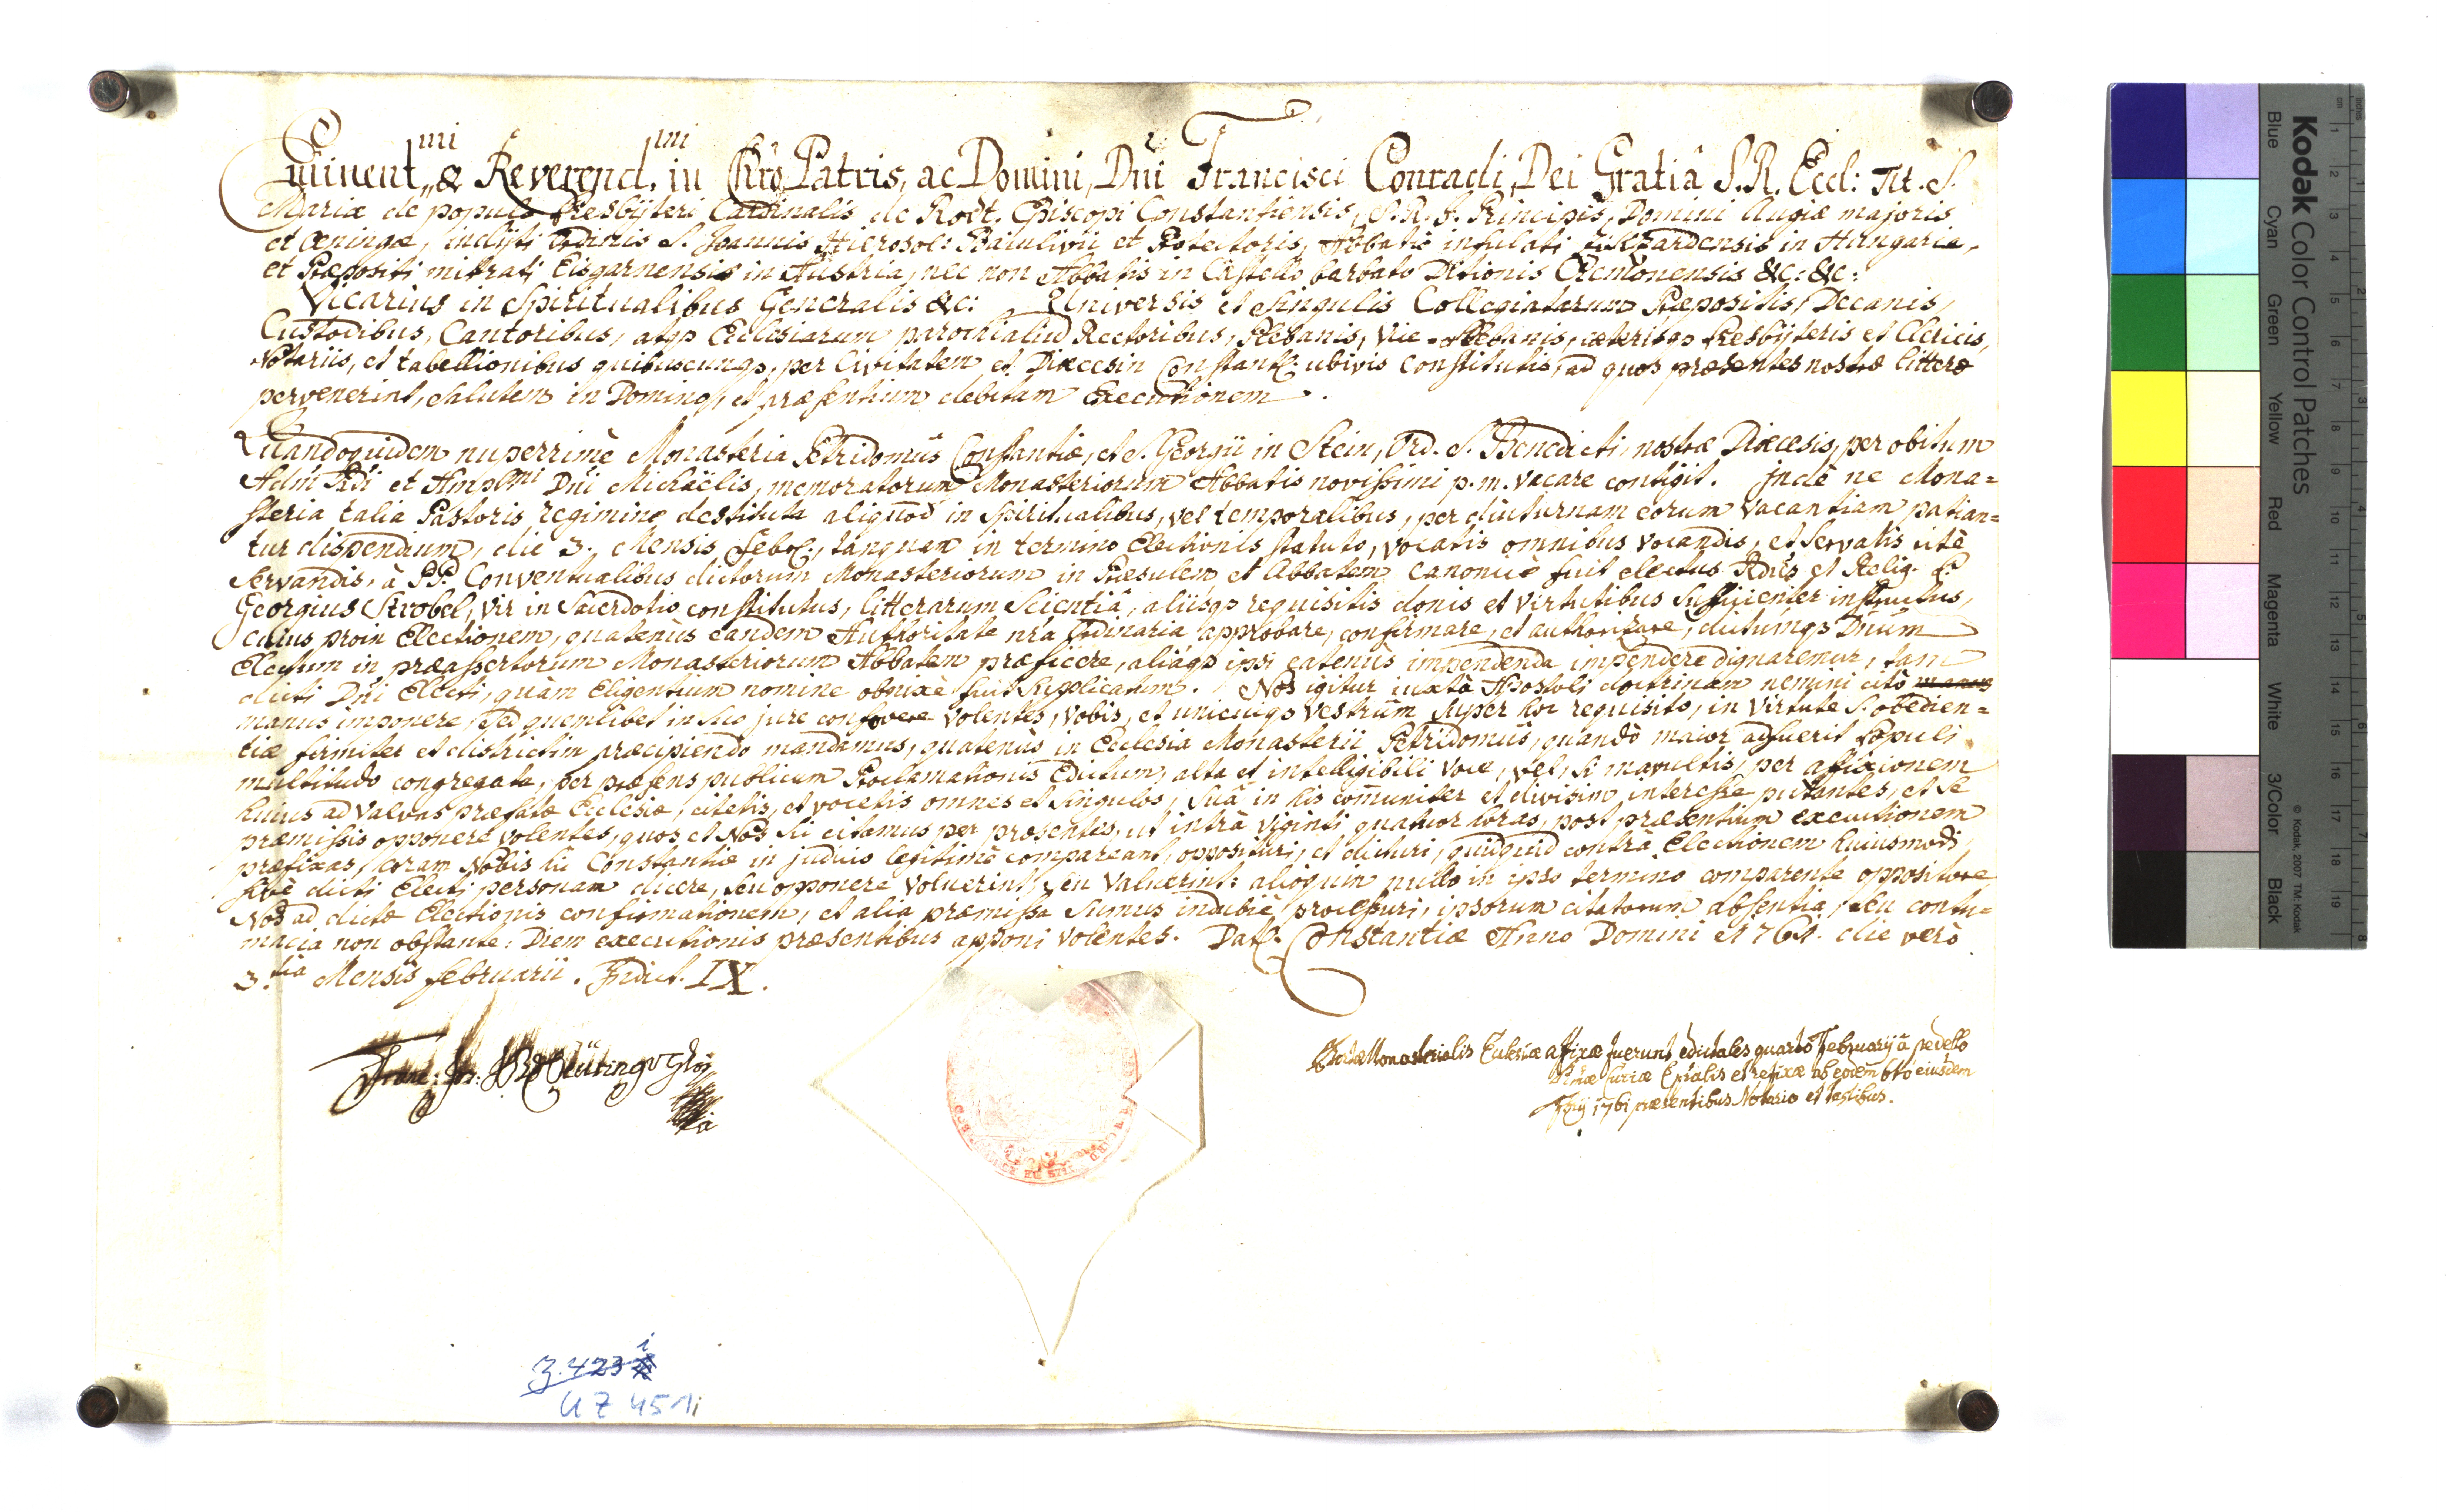 Eminent.mi & Reverend.mi in Chrō Patris, ac Domini, Dn̄i Francisci Conradi, Dei Gratiâ S. R. Eccl: Tit. S.
Mariæ de populo Presbÿteri Cardinalis de Rodt. Episcopi Constantiensis, S. R. J. Principis, Domini Augiæ majoris
et Oeningæ, inclÿti Ordinis S. Joannis Hierosol: Baiulivii et Protectoris, Abbatis infulati in Hungaria,
et Præpositi mitrati Eisgarnensis in Austria, nec non Abbatis in Castello barbato Ditionis Cremonensis &c: &c:
Vicarius in Spiritualibus Generalis &c: Universis et singulis Collegiatarum Præpositis, Decanis,
Custodibus, Cantoribus, atqȝ Ecclesiarum parochialiū Rectoribus, Plebanis, Vice-Plebanis, cæterisqȝ Presbÿteris et Clericis,
Notariis, et tabellionibus quibuscunqȝ, per Civitatem et Diæcesin Constant: ubivis constitutis, ad quos præsentes nostræ litteræ
pervenerint, salutem in Domino, et præsentium debitam Executionem.
Quandoquidem nuperrimè Monasteria Petridomûs Constantiæ, et S. Georgii in Stein, Ord. S. Benedicti, nostræ Diæcesis, per obitum
Adm̄ Rdi et Ampl̄mi Dn̄i Michaëlis, memoratorum Monasteriorum Abbatis novissimi p. m. vacare contigit. Jndè ne Mona=
steria talia Pastoris regimine destituta aliquod in Spiritualibus, vel temporalibus, per diuturnam eorum vacantiam patian=
tur dispendium, die 3. Mensis Febr:, tanquam in termino Electionis statuto, vocatis omnibus vocandis, et servatis ritè
servandis, à PP. Conventualibus dictorum Monasteriorum in Præsulem et Abbatem canonicè fuit electus Rdūs et Relig. P.
Georgius Strobel, vir in Sacerdotio constitutus, litterarum scientiâ, aliisqȝ requisitis donis et virtutibus sufficienter instructus,
cuius proin Electionem, quatenùs eandem Authoritate nr̄a Ordinaria approbare, confirmare, et authorizare, dictumqȝ Dnūm
Electum in præassertorum Monasteriorum Abbatem præficere, aliaqȝ ipsi eatenùs impendenda impendere dignaremur, tam
dicti Dn̄i Electi, quàm Eligentium nomine obnixè fuit supplicatum. Nos igitur iuxtà Apostoli doctrinam nemini citò manus
manus imponere, sed quemlibet in suo jure confovere volentes, vobis, et unicuiqȝ vestrûm super hoc requisito, in virtute S. obedien=
tiæ firmiter et districtim præcipiendo mandamus, quatenùs in Ecclesia Monasterii Petridomûs, quandò maior adfuerit Populi
multitudo congregata, per præsens publicum Proclamationis Edictum, alta et intelligibili voce, vel, si mavultis, per affixionem
huius ad valvas præfatæ Ecclesiæ, citetis, et vocetis omnes et singulos, suâ in his com̄uniter et divisim interesse putantes, et se
præmissis opponere volentes, quos et Nos sic citamus per præsentes, ut intrà viginti quatuor horas, post præsentium executionem
præfixas, coram Nobis hìc Constantiæ in judicio legitimè compareant, opposituri, et dicturi, quidquid contrà Electionem huiusmodi,
sivè dicti Electi personam dicere, seu opponere voluerint, seu valuerint: alioquin nullo in ipso termino comparente oppositore
Nos ad dictæ Electionis confirmationem, et alia præmissa sumus indubiè processuri, ipsorum citatorum absentia, seu contu=
macia non obstante. Diem executionis præsentibus apponi volentes. Dat: Constantiæ Anno Domini 1761. die verò
3.tia Mensis februarii. Jndict. IX.
Franc: Jos:
Portæ Monasterialis Ecclesiæ afixæ fuerunt edictales quarto Februarij à pedello
Curiæ Ep̄alis et refixæ ab eodem 6tò eiusdem
1761 præsentibus Notario et testibus.
3.423 i
U Z 451i
Kodak Color Control Patches
© Kodak, 2007 TM: Kodak
Blue Cyan Green Yellow Red Magenta White 3/Color Black
cm 1 2 3 4 5 6 7 8 9 10 11 12 13 14 15 16 17 18 19
inches 1 2 3 4 5 6 7 8